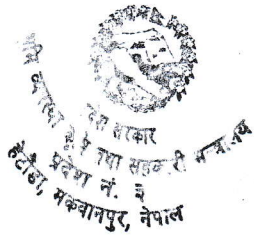 प्रदेश सरकार
तथा सहकारी मन्त्रालय
प्रदेश नं. ३
हेटौंडा, मकवानपुर, नेपाल